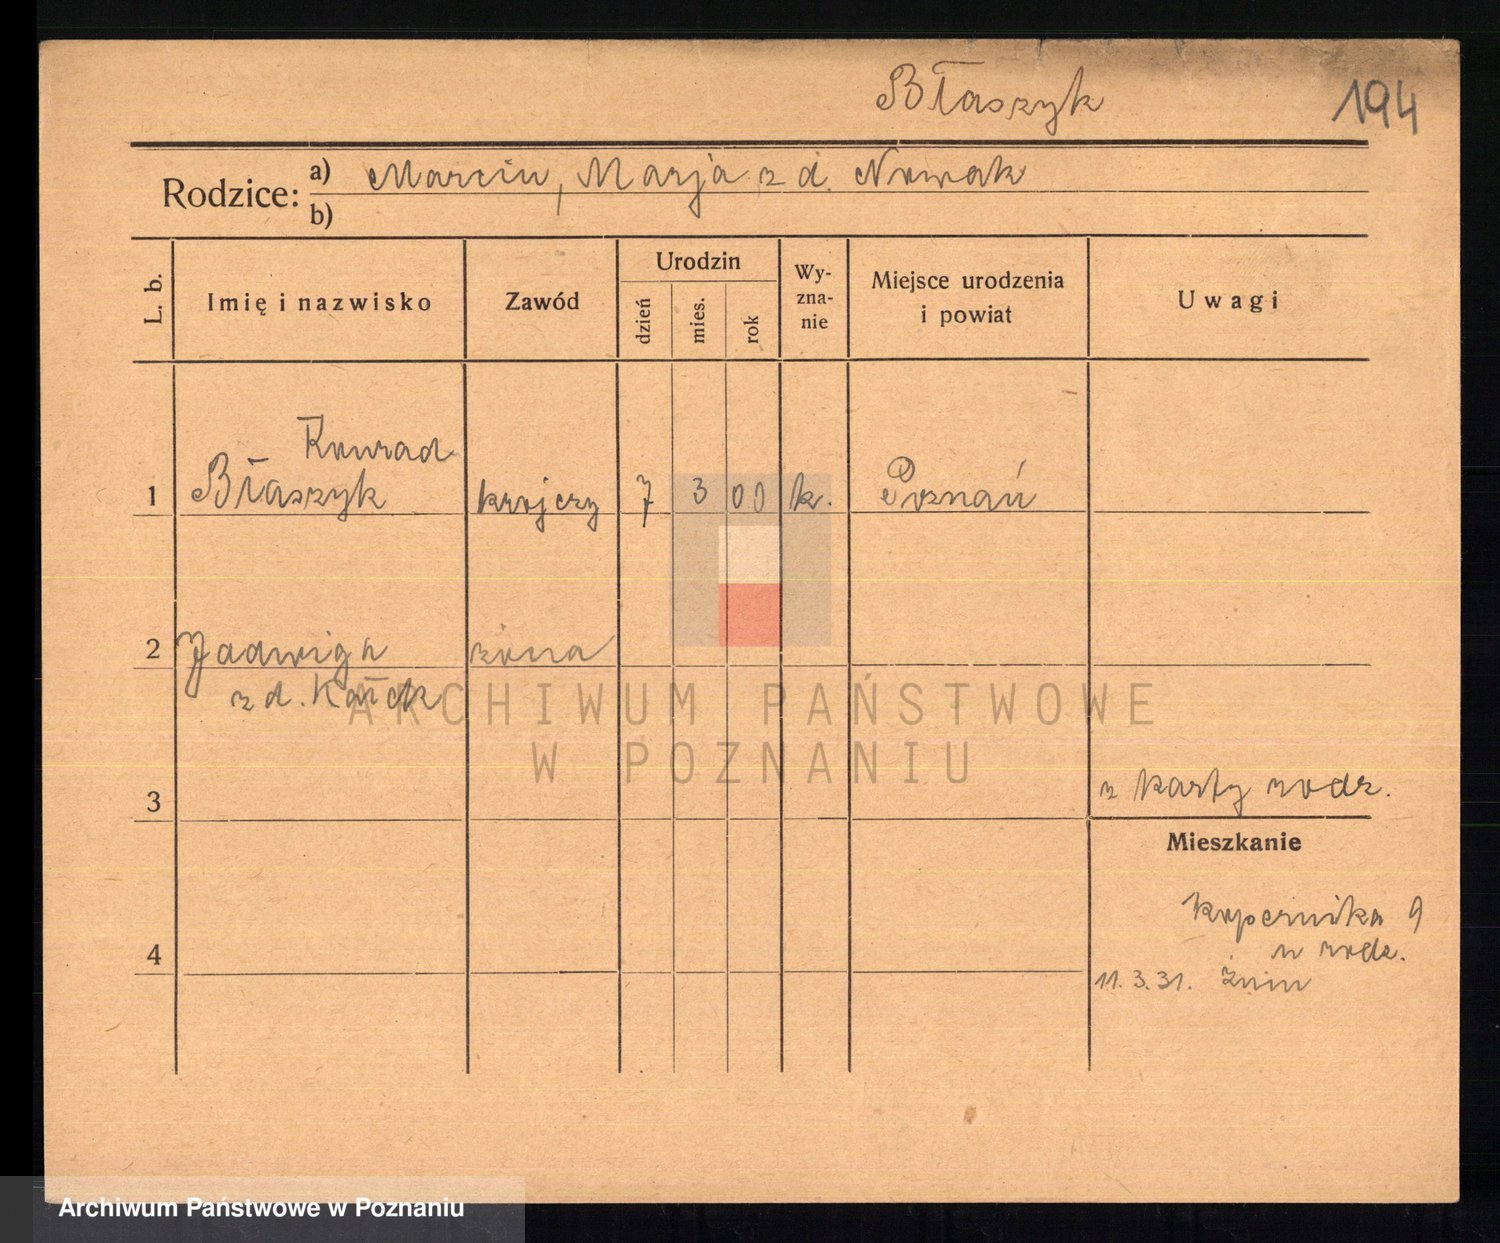 Błaszyk
194
Rodzice: a) Marcin, Marja z d. Nowak
b)
L. b.
Imię i nazwisko
Zawód
Urodzin
dzień
mies.
rok
Wy-
zna-
nie
Miejsce urodzenia
i powiat
Uwagi
Konrad
1 Błaszyk krojczy 7 3 00 k. Poznań
2 Jadwiga żona
z d.
3 z karty rodz.
Mieszkanie
Kopernika 9
4 u rodz.
11. 3. 31. Żnin
ARCHIWUM PAŃSTWOWE
W POZNANIU
Archiwum Państwowe w Poznaniu